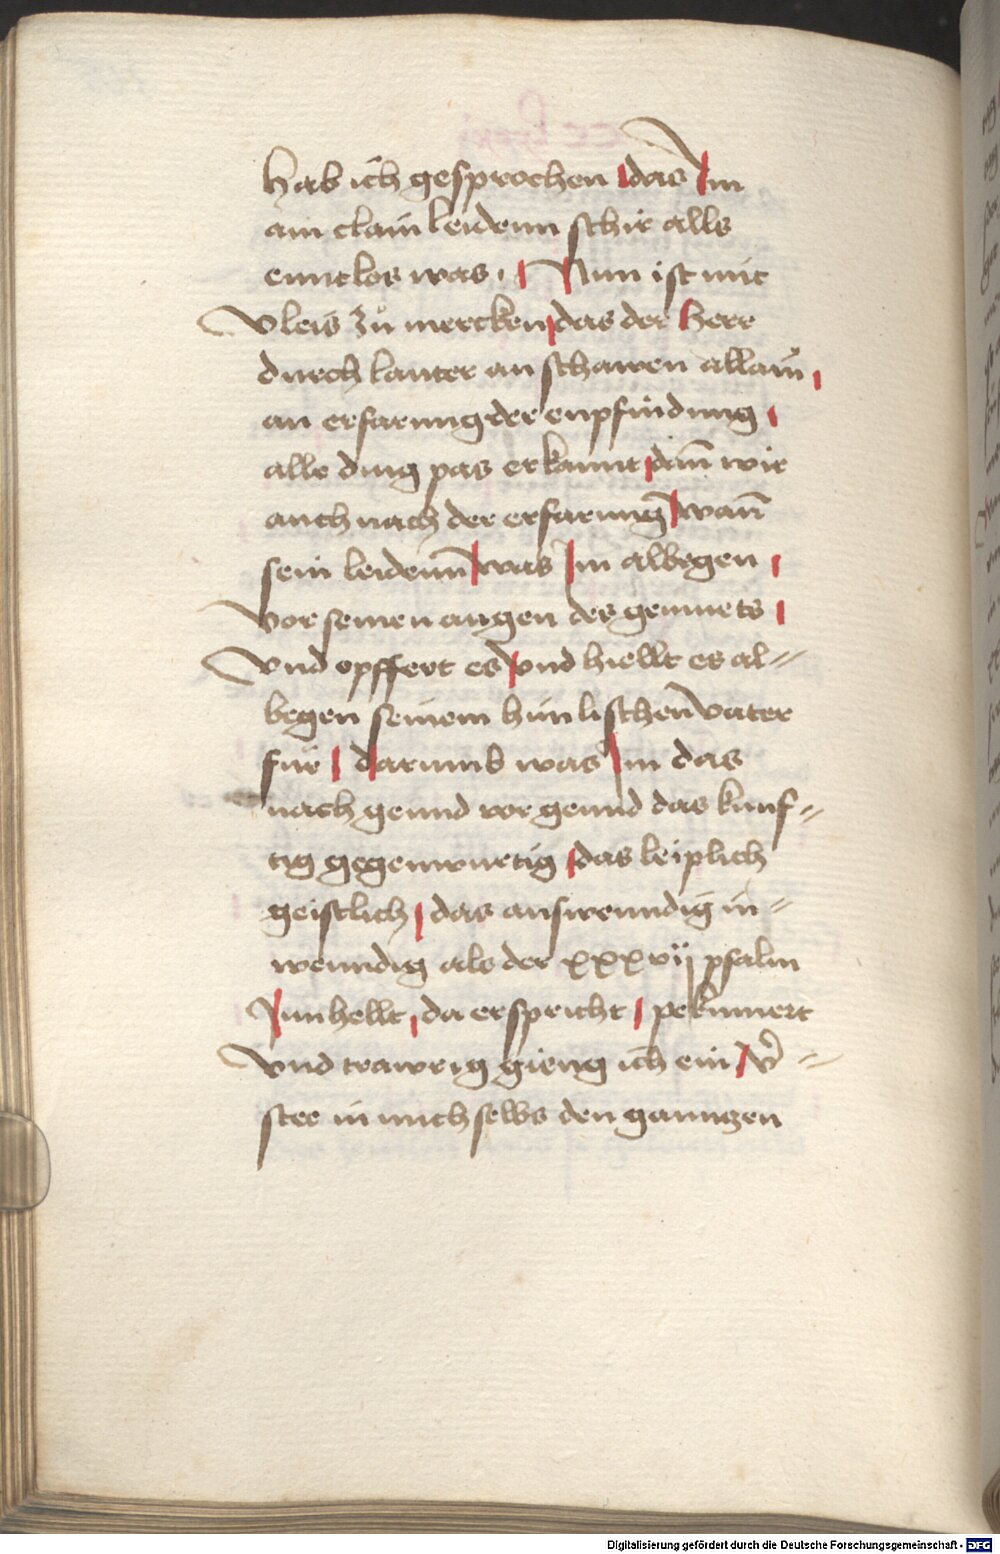 Hab ich gesprochen das Im
ain clain leidenn schir alls
enntlos was · Nun ist mit
vleis zů mercken das der Herr
durch lauter an schawen allain
an erfarung der enpfindung
alle ding pas erkannt dañ wir
auch nach der erfarung wañ
sein leidenñ was Im albegen
vor seinen augen des gemuets
Vnd opffert es vnd hiellt es al=
begen seinem himlischen vater
für darumb was Im das
nach geund vor geund das kunf=
tig gegenwurtig das leiplich
geistlich das auswenndig in=
wenndig als der xxxvij psalm
Innhellt da er spricht pekumert
vnd trawrig gieng ich ein v̉=
ster in mich selbs den ganntzen
Digitalisierung gefördert durch die Deutsche Forschungsgemeinschaft - DFG